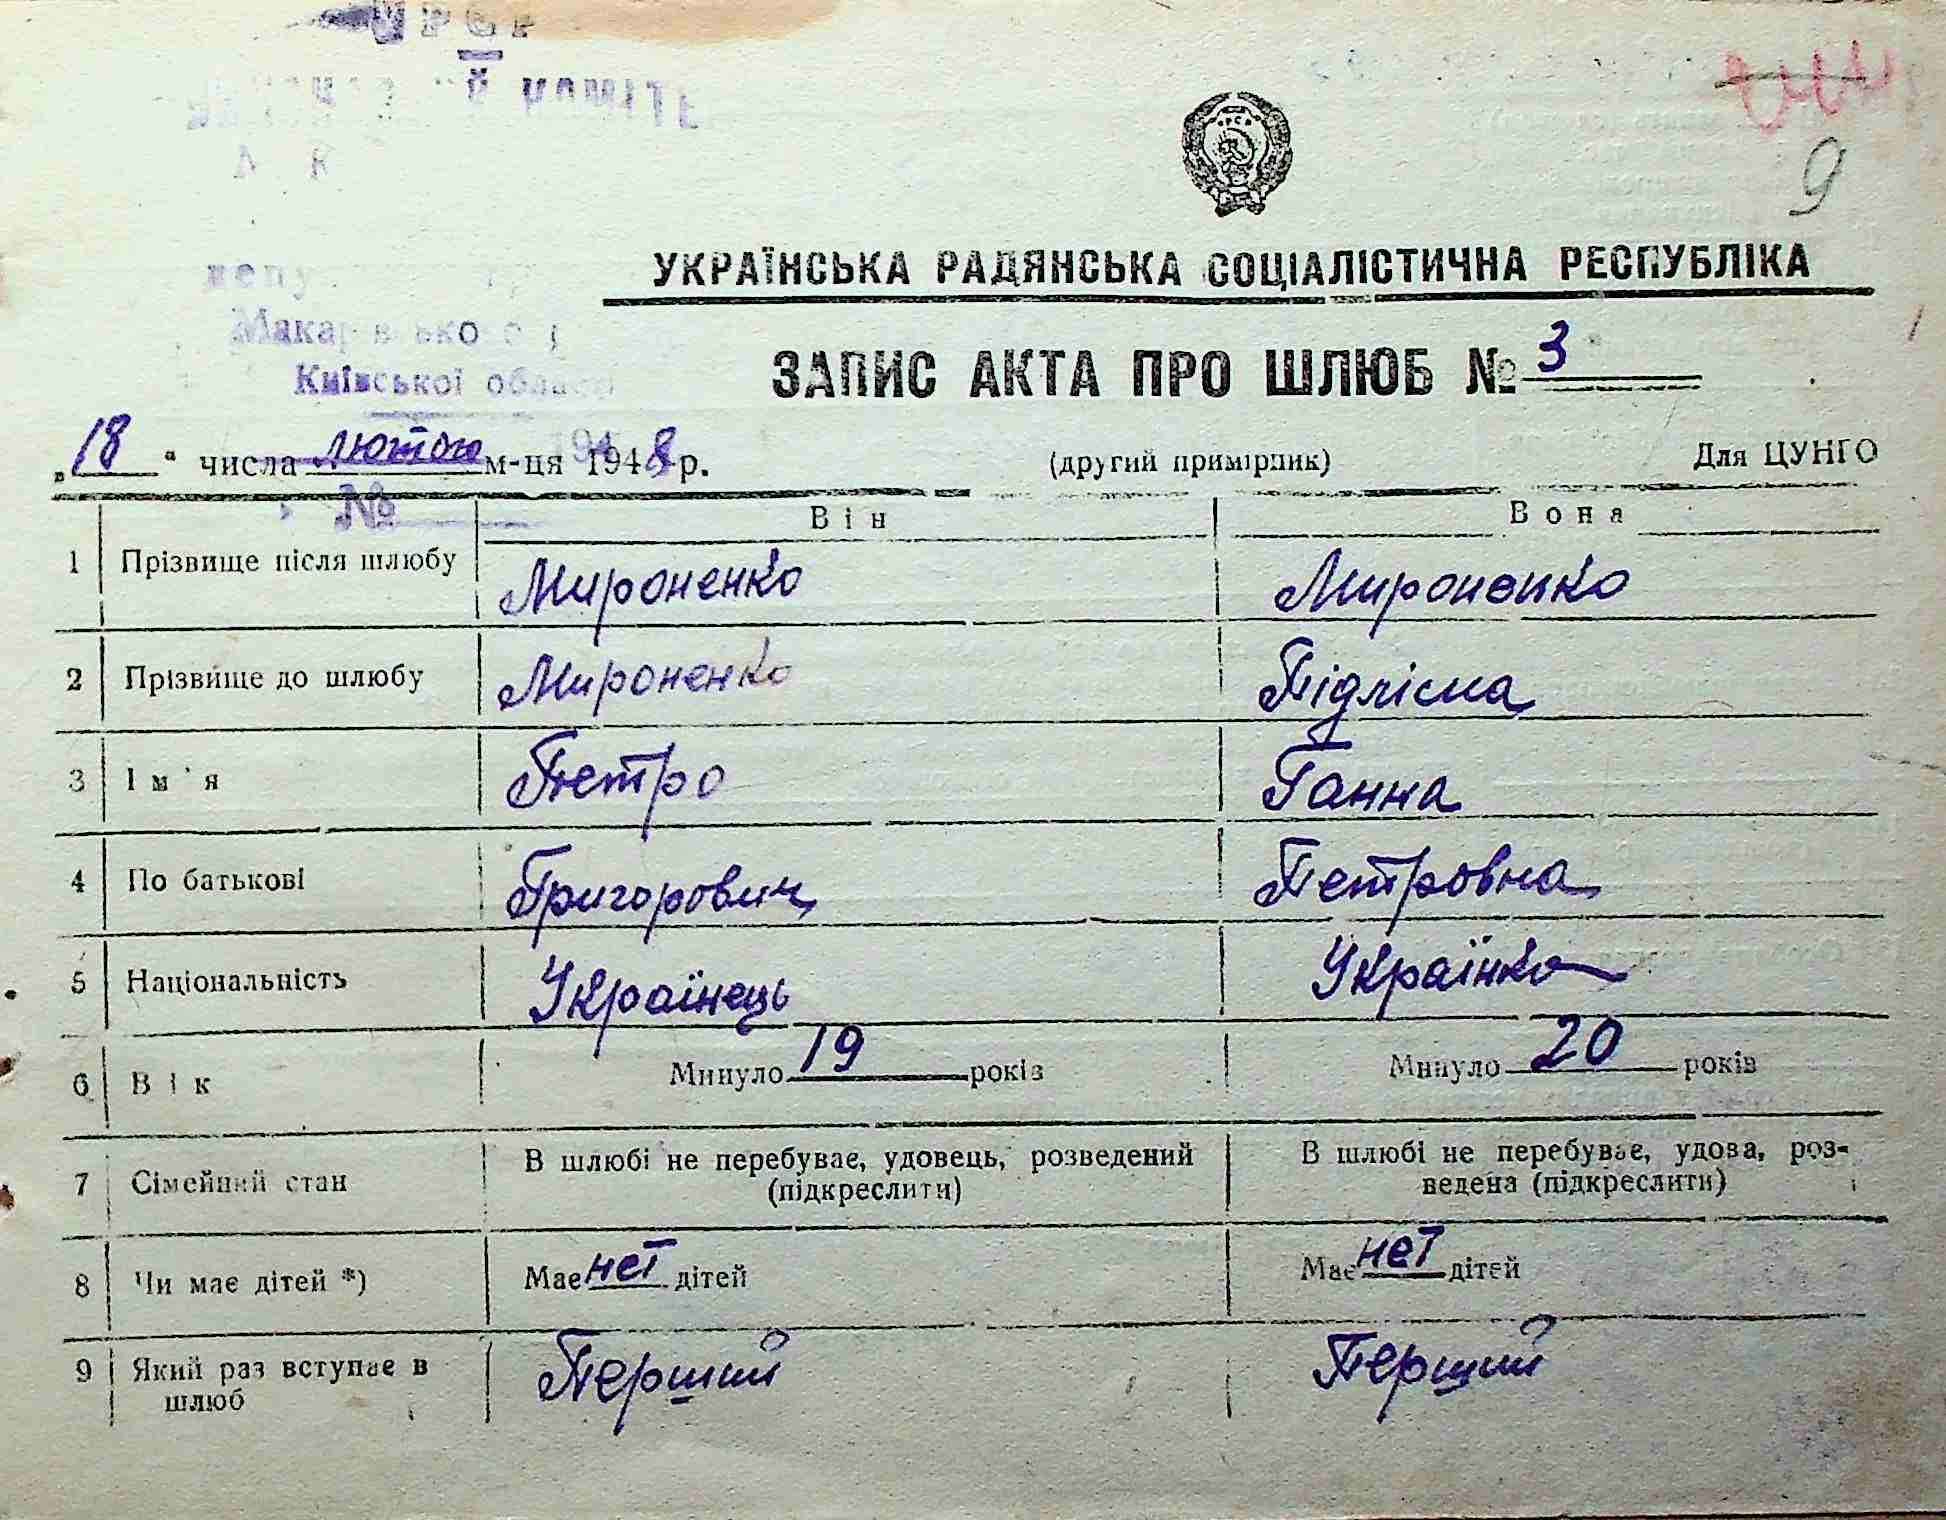 УРСР
КОМІТЕ
Макарівсько
Київської області
194
№
9
УКРАЇНСЬКА РАДЯНСЬКА СОЦІАЛІСТИЧНА РЕСПУБЛІКА
ЗАПИС АКТА ПРО ШЛЮБ № 3
„18“ числа лютого м-ця 1948 р. (другий примірник) Для ЦУНГО
Він Вона
1 Прізвище після шлюбу Мироненко Мироненко
2 Прізвище до шлюбу Мироненко Підлісна
3 Ім'я Петро Ганна
4 По батькові Григорович Петровна
5 Національність Українець Українка
6 Вік Минуло 19 років Минуло 20 років
7 Сімейний стан В шлюбі не перебуває, удовець, розведений В шлюбі не перебуває, удова, роз-
(підкреслити) ведена (підкреслити)
8 Чи має дітей *) Має нет дітей Має нет дітей
9 Який раз вступає в Перший Перший
шлюб